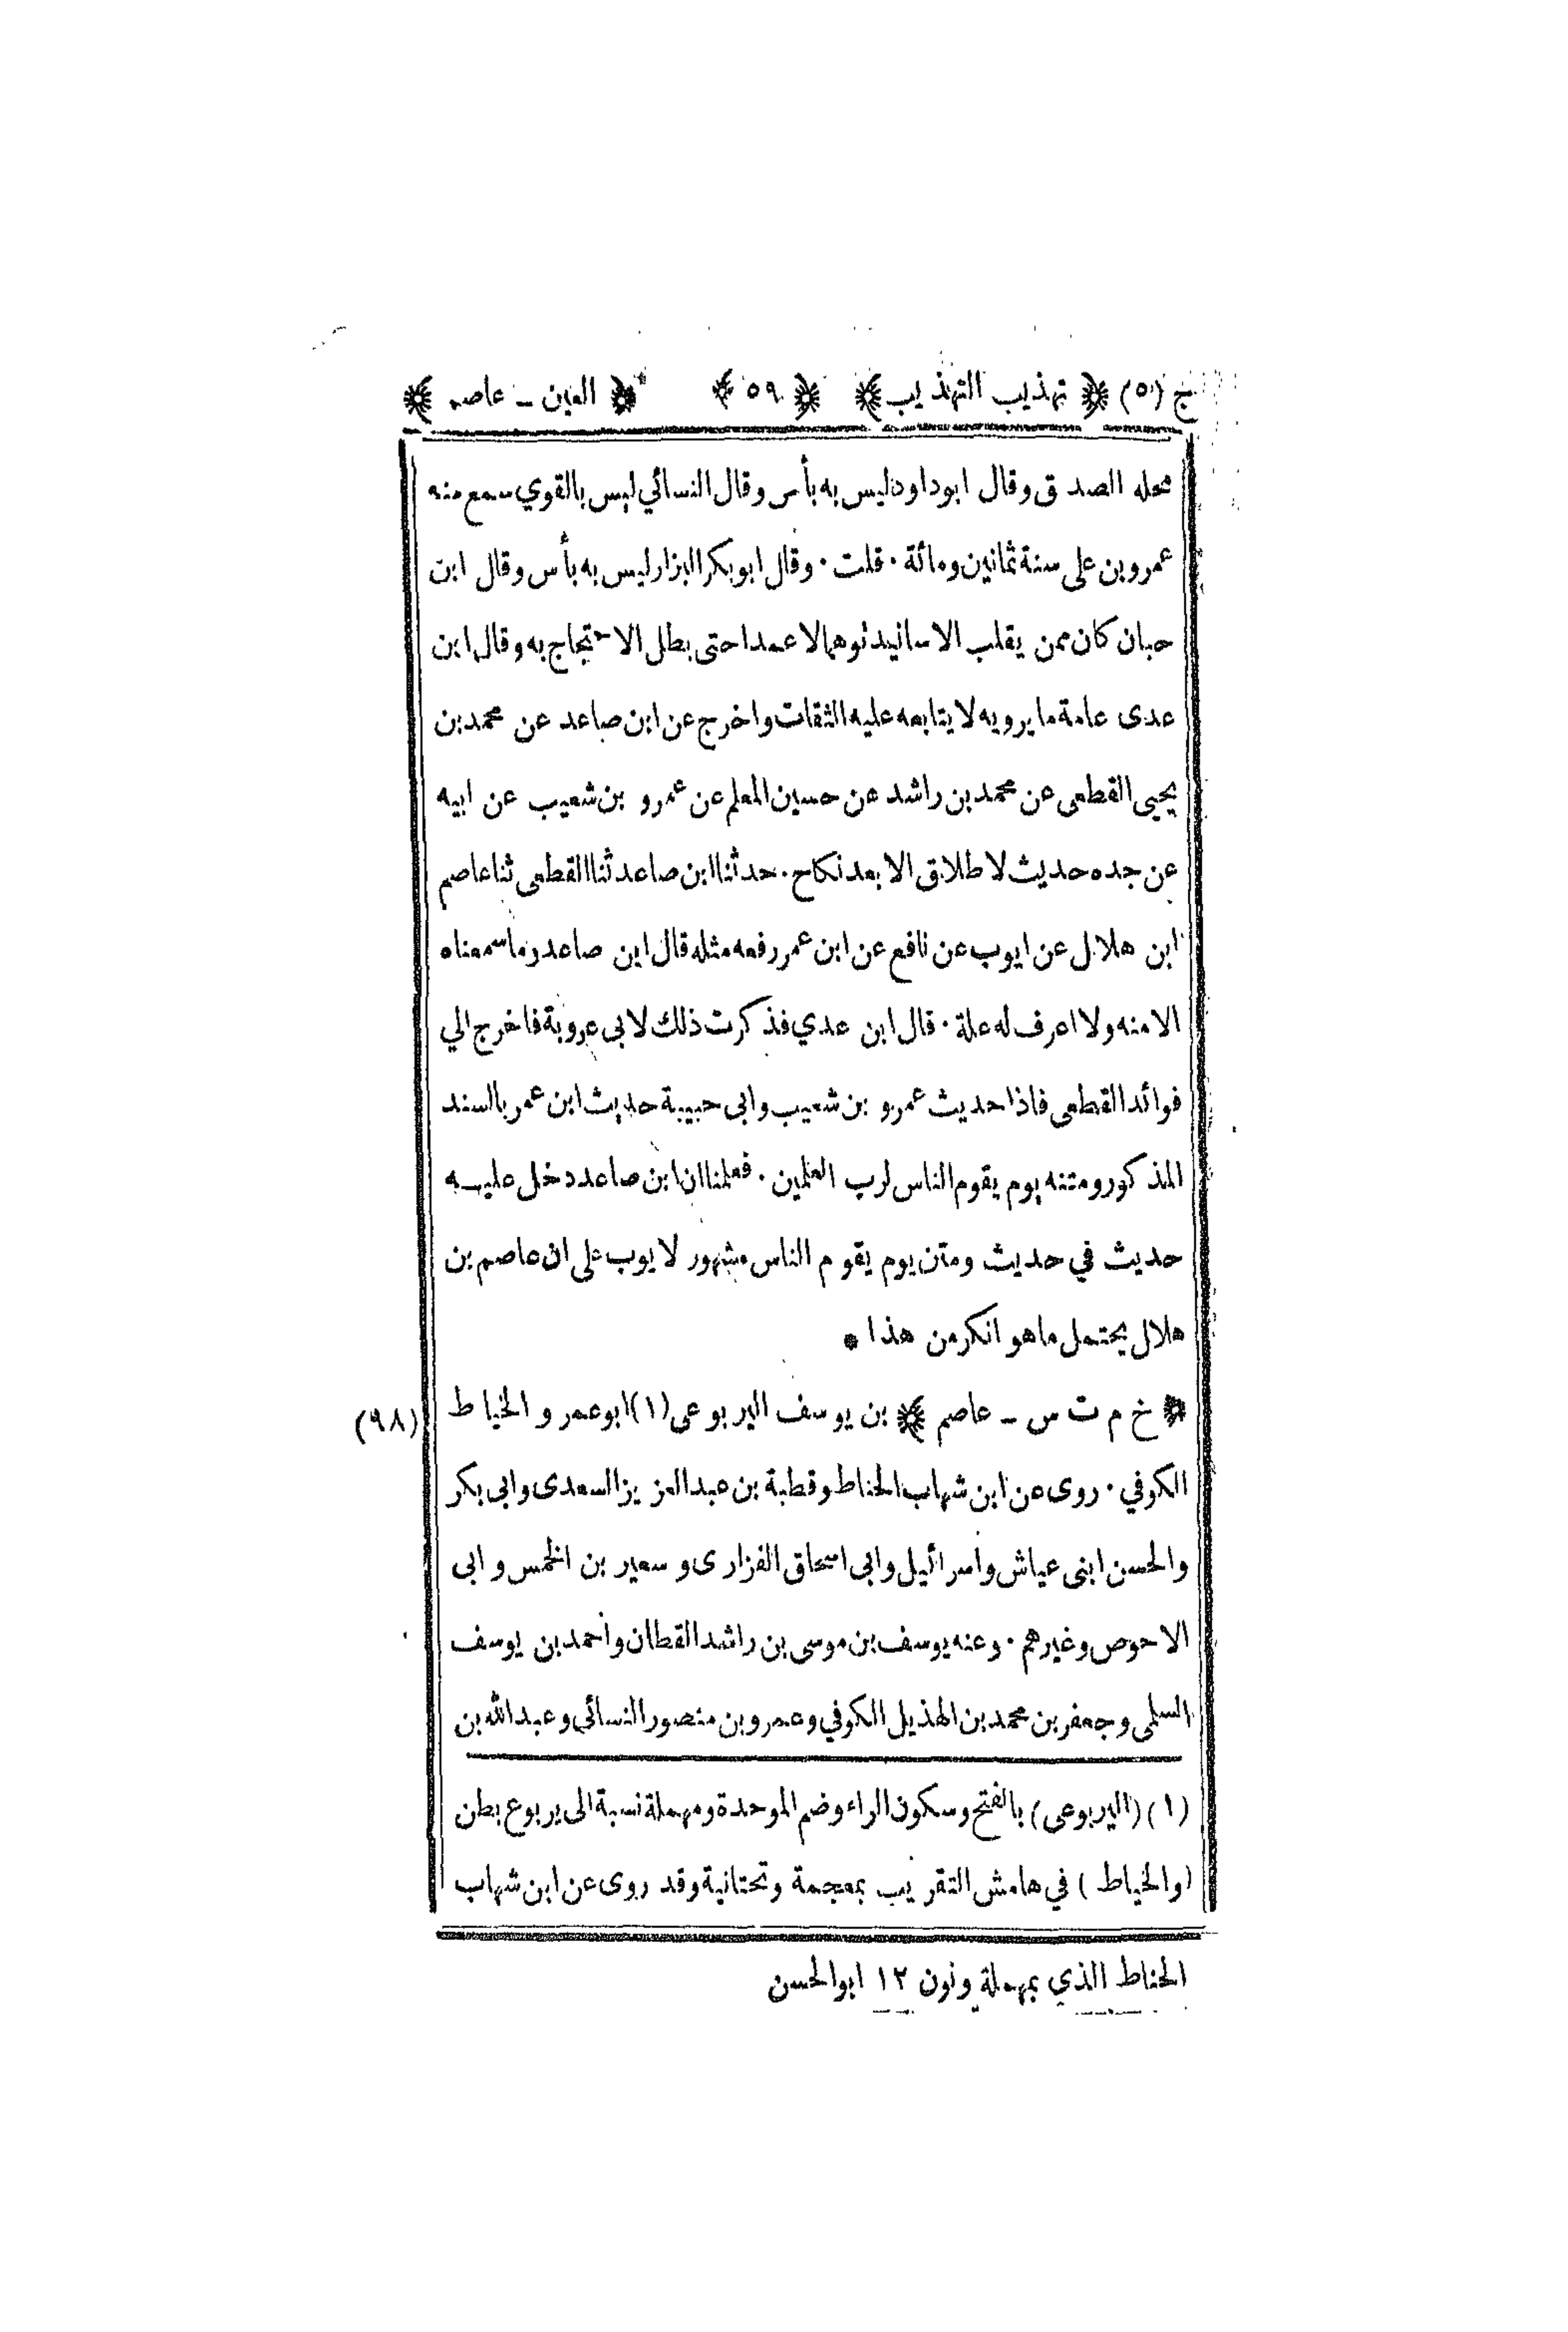 ج (٥) ﴿ تهذيب التهذيب ﴾ ﴿ ٥٩ ﴾ ﴿ العين ــ عاصم ﴾
محله الصدق وقال ابوداود ليس به بأس وقال النسائي ليس بالقوي سمع منه
عمرو بن على سنة ثمانين ومائة ٠ قلت ٠ وقال ابوبكر البزار ليس به بأس وقال ابن
حبان كان ممن يقلب الاسانيد توهما لا عمدا حتى بطل الاحتجاج به وقال ابن
عدى عامة ما يرويه لا يتابعه عليه الثقات واخرج عن ابن صاعد عن محمد بن
يحيى القطعى عن محمد بن راشد عن حسين المعلم عن عمرو بن شعيب عن ابيه
عن جده حديث لا طلاق الا بعد نكاح ٠ حدثنا ابن صاعد ثنا القطعى ثنا عاصم
ابن هلال عن ايوب عن نافع عن ابن عمر رفعه مثله قال ابن صاعد وما سمعناه
الا منه ولا اعرف له علة ٠ قال ابن عدي فذكرت ذلك لابى عروبة فاخرج الي
فوائد القطعى فاذا حديث عمرو بن شعيب وابى حبيبة حديث ابن عمر بالسند
المذكور ومتنه يوم يقوم الناس لرب العلمين ٠ فعلمنا ان ابن صاعد دخل عليه
حديث في حديث ومتن يوم يقوم الناس مشهور لايوب على ان عاصم بن
هلال يحتمل ما هو انكر من هذا *
﴿ خ م ت س ــ عاصم ﴾ بن يوسف اليربوعى (١) ابوعمرو الخياط (٩٨)
الكوفي ٠ روى عن ابن شهاب الحناط وقطبة بن عبدالعزيز السعدى وابى بكر
والحسن ابنى عياش واسرائيل وابى اسحاق الفزارى و سعير بن الخمس و ابى
الاحوص وغيرهم ٠ وعنه يوسف بن موسى بن راشد القطان وأحمد بن يوسف
السلمى وجعفر بن محمد بن الهذيل الكوفي وعمرو بن منصور النسائي وعبد الله بن
(١) (اليربوعى) بالفتح وسكون الراء وضم الموحدة ومهملة نسبة الى يربوع بطن
(والخياط) في هامش التقريب بمعجمة وتحتانية وقد روى عن ابن شهاب
الحناط الذي بمهملة ونون ١٢ ابوالحسن